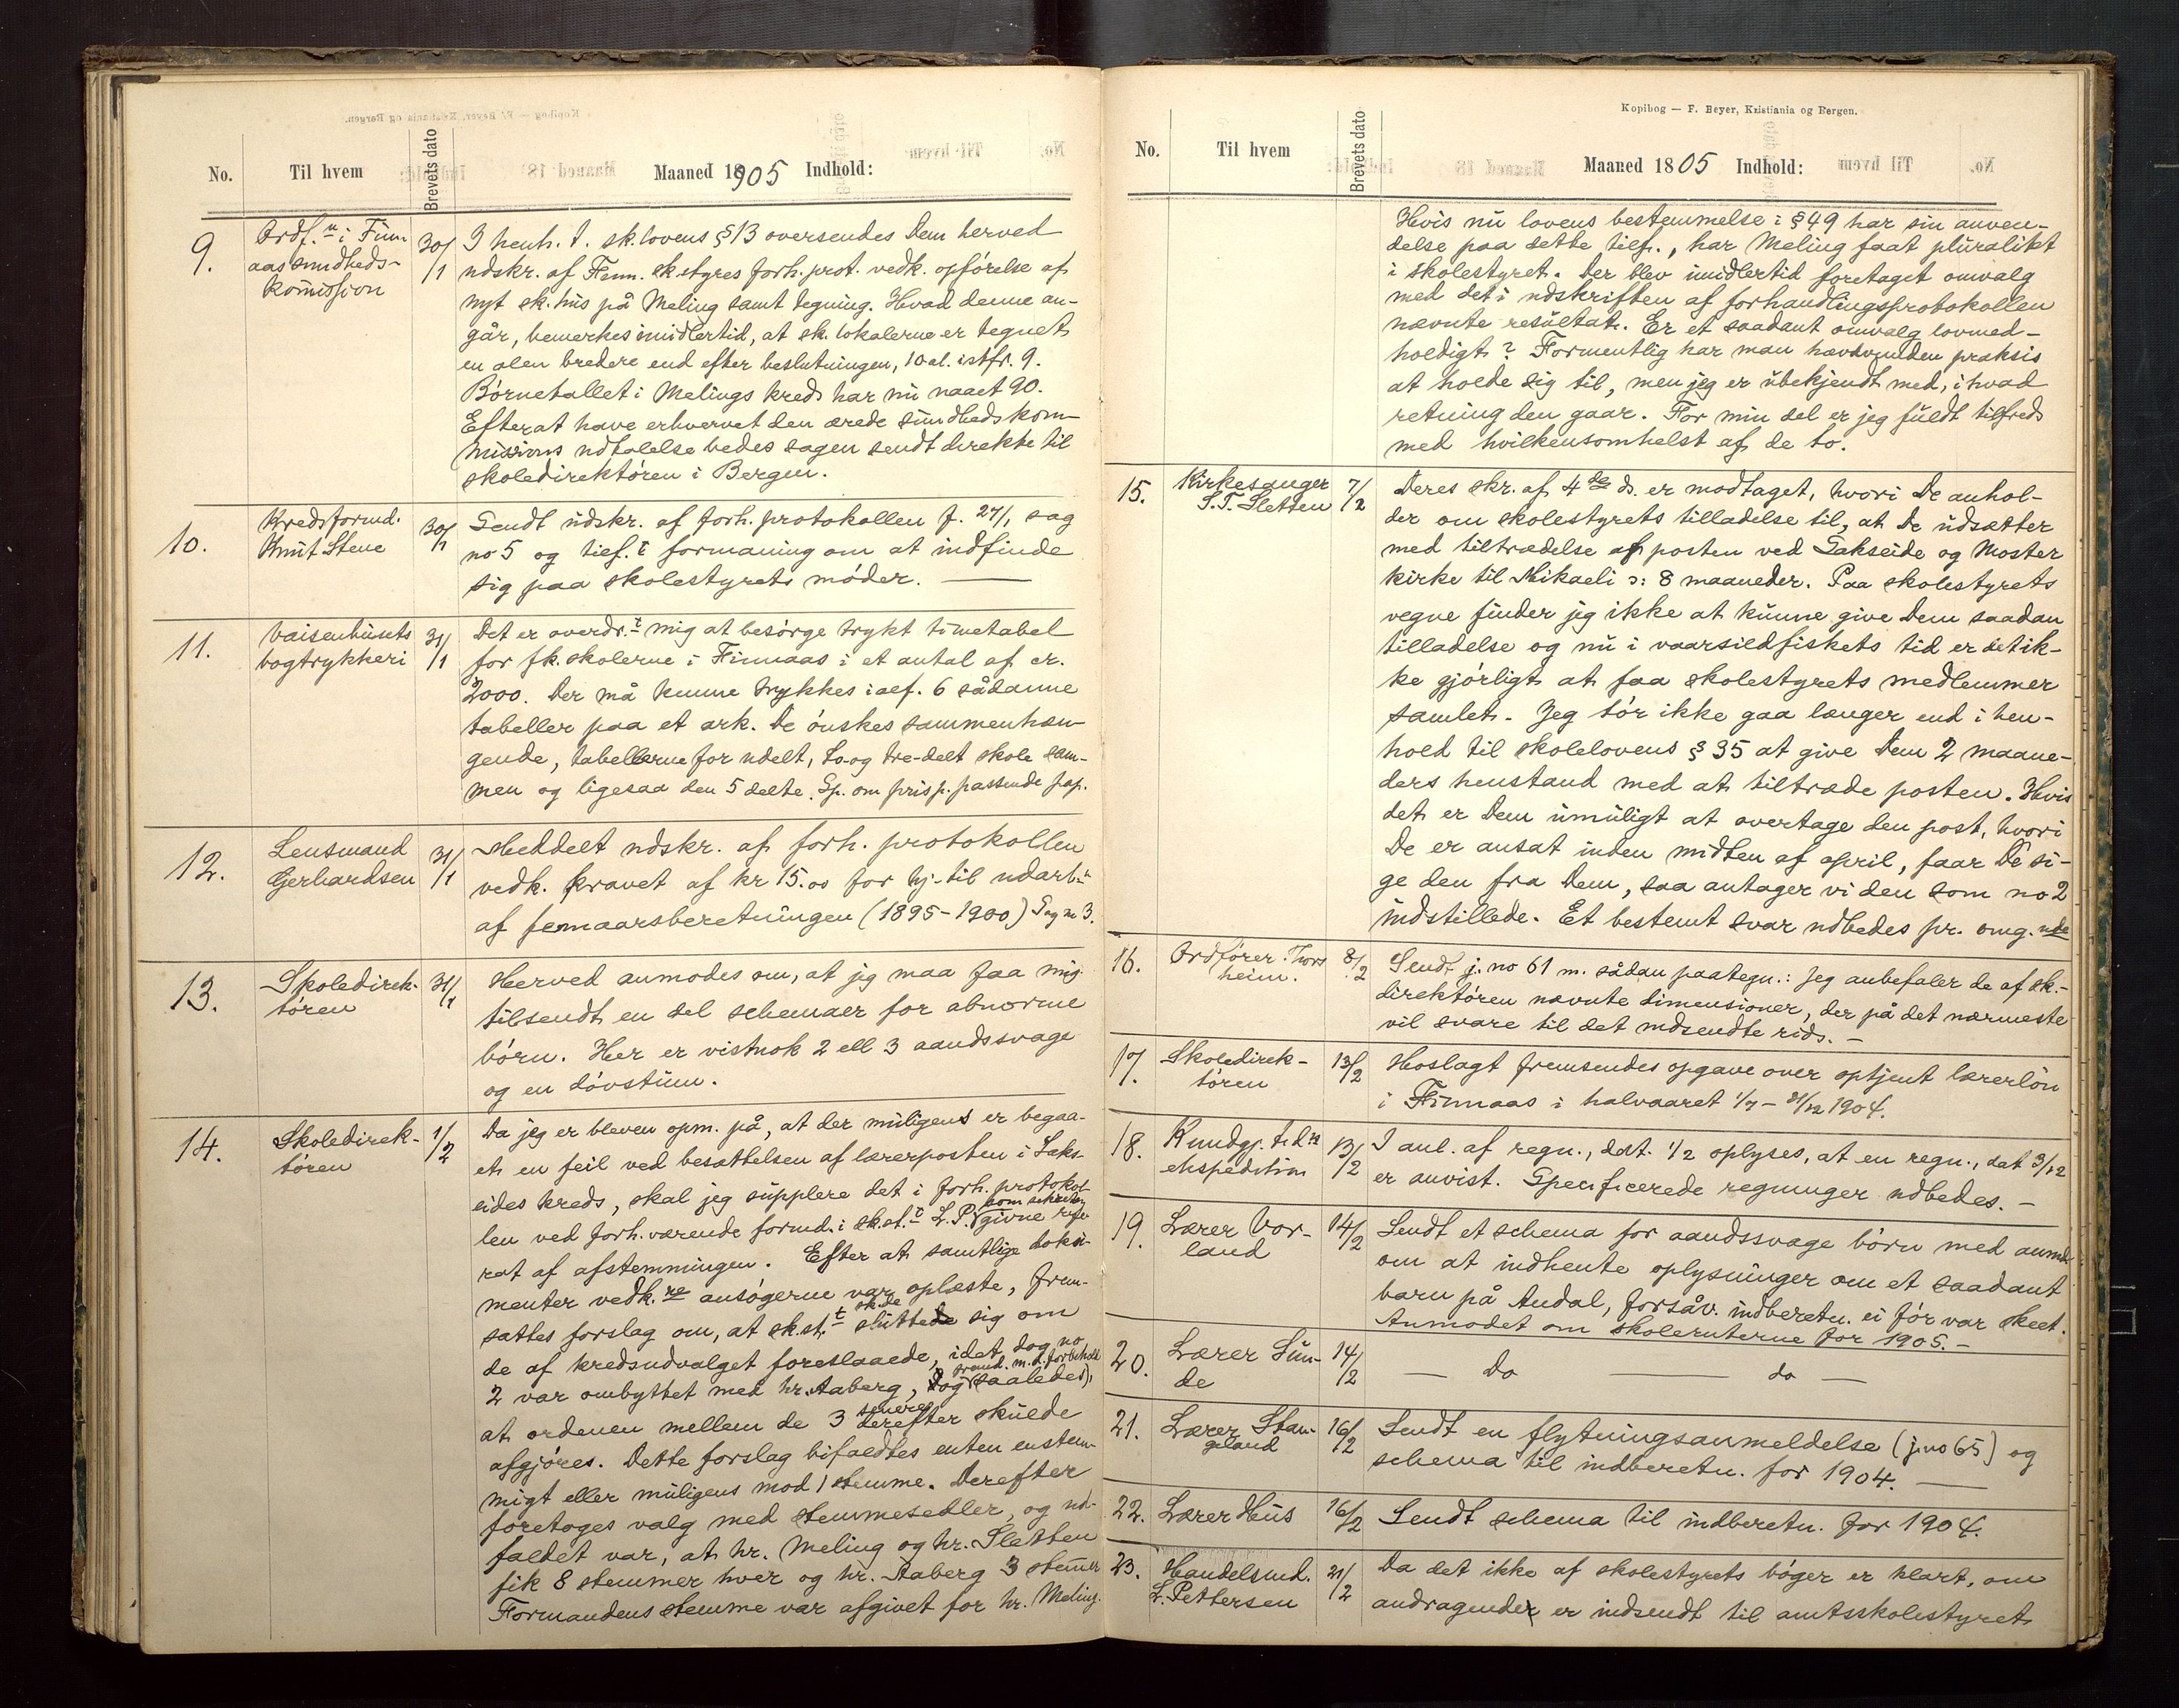 No. Til hvem Brevets dato Maaned 1905 Indhold:
9. Ordf.n i Finn-
aas sundheds-
komission
30/1
I henh. t. sk.lovens §13 oversendes Dem herved
udskr. af Finn. sk.styres forh.prot. vedk. opførelse af
nyt sk.hus på Meling samt tegning. Hvad denne an-
går, bemerkes imidlertid, at sk.lokalerne er tegnet
en alen bredere end efter beslutningen, 10 al. istf. 9.
Børnetallet i Melings kreds har nu naaet 90.
Efterat have erhvervet den ærede sundhedskom-
missions udtalelse bedes sagen sendt direkte til
skoledirektøren i Bergen.
10. Kredsformd.
Knut Stene
30/1
Sendt udskr. af forh.protokollen f. 27/1, sag
no 5 og tilf. t formaning om at indfinde
sig paa skolestyrets møder. —
11. Vaisenhusets
bogtrykkeri
31/1
Det er overdr.t mig at besørge trykt timetabel
for fk.skolerne i Finnaas i et antal af cr.
2000. Der må kunne trykkes ialf. 6 sådanne
tabeller paa et ark. De ønskes sammenhæn-
gende, tabellerne for udelt, to- og tre-delt skole sam-
men og ligesaa den 5 delte. Sp. om pris p. passende pap.
12. Lensmand
Gerhardsen
31/1
Meddelt udskr. af forh.protokollen
vedk. kravet af kr 15.00 for hj. til udarb.n
af femaarsberetningen (1895-1900) Sag no 3.
13. Skoledirek-
tøren
31/1
Herved anmodes om, at jeg maa faa mig
tilsendt en del schemaer for abnorme
børn. Her er vistnok 2 ell 3 aandssvage
og en døvstum.
14. Skoledirek-
tøren
1/2
Da jeg er bleven opm. på, at der muligens er begaa-
et en feil ved besættelsen af lærerposten i Saks-
eides kreds, skal jeg supplere det i forh.protokol-
len ved forh.værende formd. i sk.st.t L.P. som givne refe-
rat af afstemningen. Efter at samtlige doku-
menter vedk.re ansøgerne var oplæste, frem-
sattes forslag om, at sk.st.t skde sluttede sig om
de af kredsudvalget foreslaaede, idet dog no
2 var ombyttet med hr. Aaberg, dog saaledes,
at ordenen mellem de 3 senere derefter skulde
afgjøres. Dette forslag bifaldtes enten enstem-
migt eller muligens mod 1 stemme. Derefter
foretoges valg med stemmesedler, og ud-
faldet var, at hr. Meling og hr. Sletten
fik 8 stemmer hver og hr. Aaberg 3 stemmer
Formandens stemme var afgivet for hr. Meling.
Kopibog — F. Beyer, Kristiania og Bergen.
No. Til hvem Brevets dato Maaned 1805 Indhold:
Hvis nu lovens bestemmelse i §49 har sin anven-
delse paa dette tilf., har Meling faat pluralitet
i skolestyret. Der blev imidlertid foretaget omvalg
med det i udskriften af forhandlingsprotokollen
nævnte resultat. Er et saadant omvalg lovmed-
holdigt? Formentlig har man hævdvunden praksis
at holde sig til, men jeg er ubekjendt med, i hvad
retning den gaar. For min del er jeg fuldt tilfreds
med hvilkensomhelst af de to.
15. Kirkesanger
S.T. Sletten
7/2
Deres skr. af 4de ds. er modtaget, hvori De anhol-
der om skolestyrets tilladelse til, at De udsætter
med tiltrædelse af posten ved Sakseide og Moster
kirke til Mikaeli ɔ: 8 maaneder. Paa skolestyrets
vegne finder jeg ikke at kunne give Dem saadan
tilladelse og nu i vaarsildfiskets tid er det ik-
ke gjørligt at faa skolestyrets medlemmer
samlet. Jeg tør ikke gaa længer end i hen-
hold til skolelovens § 35 at give Dem 2 maane-
ders henstand med at tiltræde posten. Hvis
det er Dem umuligt at overtage den post, hvori
De er ansat inden midten af april, faar De si-
ge den fra Dem, saa antager vi den som no 2
indstillede. Et bestemt svar udbedes pr. omg.nde
16. Ordfører Thors-
heim.
8/2
Sendt j. no 61 m. sådan paategn.: Jeg anbefaler de af sk.-
direktøren nævnte dimensioner, der på det nærmeste
vil svare til det indsendte rids. —
17. Skoledirek-
tøren
13/2
Hoslagt fremsendes opgave over optjent lærerløn
i Finnaas i halvaaret 1/7 – 31/12 1904.
18. Kundgj. t.d.n
ekspedition
13/2
I anl. af regn., dat. 1/2 oplyses, at en regn., dat 3/12
er anvist. Specificerede regninger udbedes. —
19. Lærer Vor-
land
14/2
Sendt et schema for aandssvage børn med anmd.
om at indhente oplysninger om et saadant
barn på Andal, forsåv. indberetn. ei før var skeet.
Anmodet om skoleruterne for 1905. —
20. Lærer Sun-
de
14/2
— Do — do —
21. Lærer Stan-
geland
16/2
Sendt en flytningsanmeldelse (j.no 65) og
schema til indberetn. for 1904. —
22. Lærer Hus
16/2
Sendt schema til indberetn. for 1904.
23. Handelsmd.
L. Pettersen
21/2
Da det ikke af skolestyrets bøger er klart, om
andragender er indsendt til amtsskolestyret